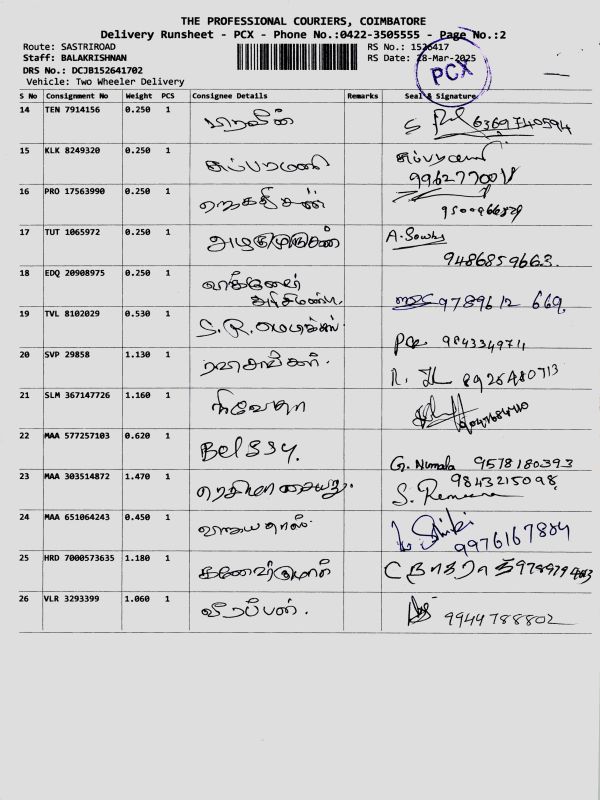 THE PROFESSIONAL COURIERS, COIMBATORE
Delivery Runsheet - PCX - Phone No.:0422-3505555 - Page No.:2
Route: SASTRIROAD RS No.: 1526417
Staff: BALAKRISHNAN RS Date: 28-Mar-2025
DRS No.: DCJB152641702
Vehicle: Two Wheeler Delivery
PCX
S No Consignment No Weight PCS Consignee Details Remarks Seal & Signature
14 TEN 7914156 0.250 1 பிரவீன் S 6369740594
15 KLK 8249320 0.250 1 சுப்பரமணி
16 PRO 17563990 0.250 1 ஜெகதீசன்
17 TUT 1065972 0.250 1 A.Sowby
9486859663.
18 EDQ 20908975 0.250 1 9789612 669.
19 TVL 8102029 0.530 1 S.R. 9843349711
20 SVP 29858 1.130 1 R. 8926480713
21 SLM 367147726 1.160 1 நிவேதா
22 MAA 577257103 0.620 1 Belssy. G. Nirmala 9578180393
23 MAA 303514872 1.470 1 9843215098
24 MAA 651064243 0.450 1 9976167804
25 HRD 7000573635 1.180 1
26 VLR 3293399 1.060 1 வீரப்பன். 9944788802